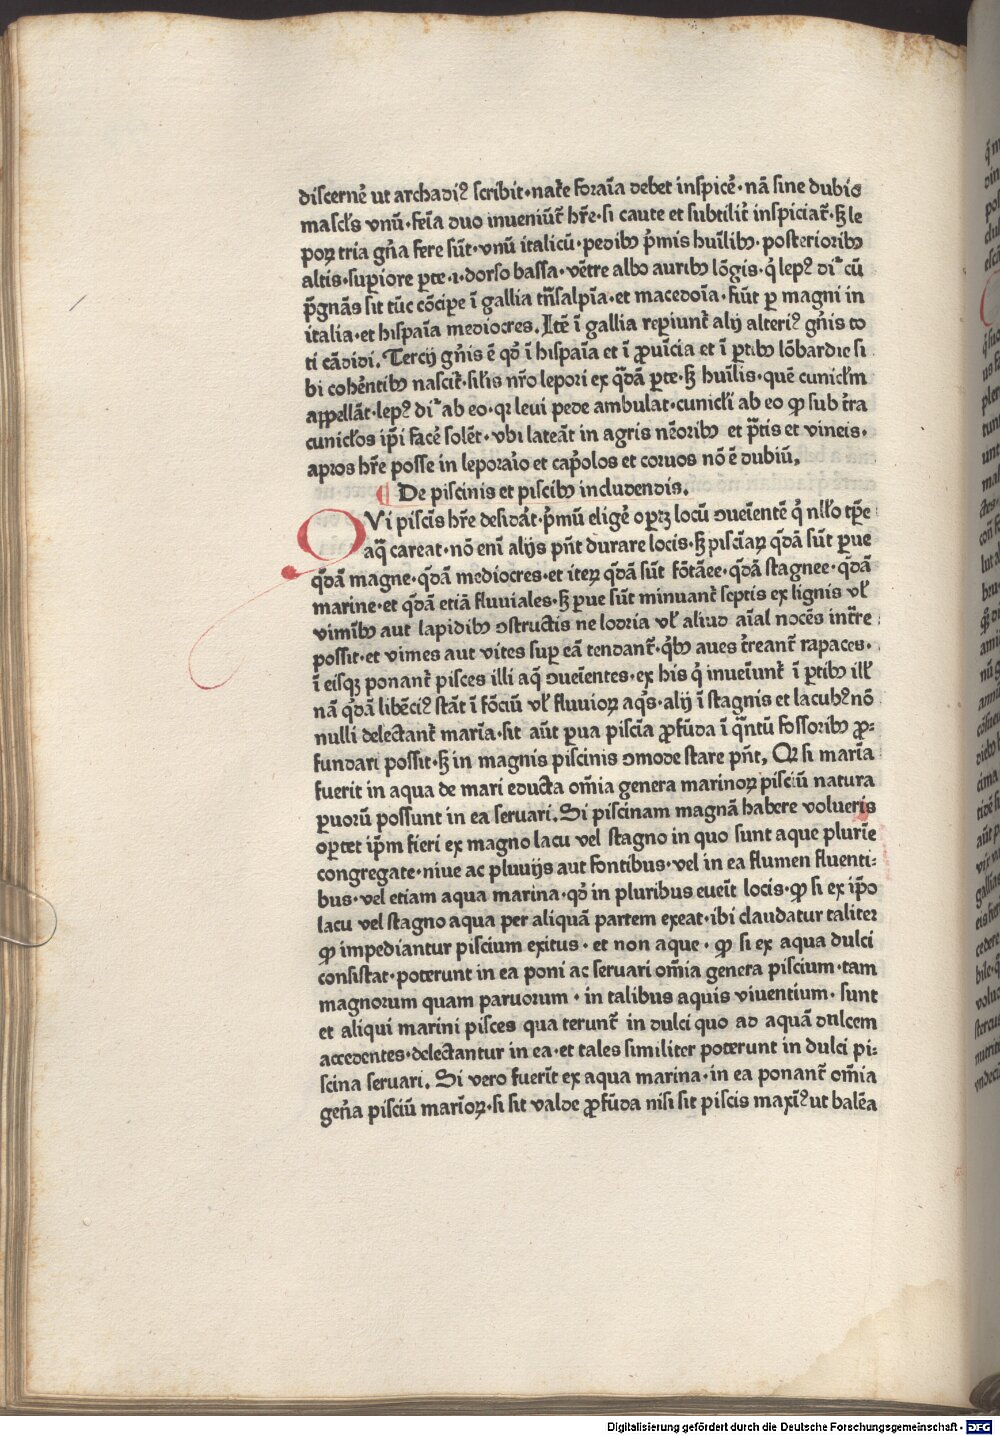 discernẽ ut archadiꝰ scribit·nat̃e foraĩa debet inspicẽ·nã sine dubio
mascl̃s vnũ·fẽia duo inueniũt̃ hr̃e·si caute et subtilit̃ inspiciat̃·ꝫ le
poꝝ tria gña fere sũt·vnũ italicũ·pedibꝰ p̃mis huĩlibꝰ·posterioribꝰ
altis·suꝑiore ꝑte·ı·dorso bassa·vẽtre albo auribꝰ lõgis·q̇ lepꝰ dr̃ cũ
p̃gnãs sit tũc cõcipe ĩ gallia tñsalpĩa·et macedoĩa·fiũt ꝑ magni in
italia·et hispaĩa mediocres. Itẽ ĩ gallia reꝑiunt̃ alij alteriꝰ gñis to
ti cãdidi. Tercij gñis ẽ qď ĩ hispaĩa et ĩ ꝓuĩcia et ĩ ꝑtibꝰ lõbardie si
bi cohẽntibꝰ nascit̃·sil̃is nr̃o lepori ex q̃dã ꝑte·ꝫ huĩlis·quẽ cunicl̃m
appellãt·lepꝰ dr̃ ab eo·qꝛ leui pede ambulat·cunicl̃i ab eo ꝙ sub t̃ra
cunicl̃os ip̃i facẽ solẽt·vbi lateãt in agris nẽoribꝰ et p̃tis et vineis·
apros hr̃e posse in leporaĩo et cap̃olos et coruos nõ ẽ dubiũ.
¶ De piscinis et piscibꝰ includendis.
QVi piscĩs hr̃e desidãt·p̃mũ eligẽ oꝑtꝫ locũ ꝯueĩentẽ q̇ nll̃o tp̃e
aq̃ careat·nõ enĩ alijs pñt durare locis·ꝫ piscĩaꝝ q̃dã sũt ꝑue
q̃dã magne·q̃dã mediocres·et iteꝝ q̃dã sũt fõtãee·q̃dã stagnee·q̃dã
marine·et q̃dã etiã fluuiales·ꝫ ꝑue sũt minuant̃ septis ex lignis vl̃
vimĩbꝰ aut lapidibꝰ ꝯstructis ne lodria vl̃ aliud aĩal nocẽs int̃re
possit·et vimes aut vites suꝑ eã tendant̃·q̇bꝰ aues t̃reant̃ rapaces·
ĩ eisqꝫ ponant̃ pisces illi aq̃ ꝯueĩentes·ex his q̇ inueĩunt̃ ĩ ꝑtibꝰ ill̃
nã q̇dã libẽciꝰ stãt ĩ fõciũ vl̃ fluuioꝝ aq̇s·alij ĩ stagnis et lacubꝰ nõ
nulli delectant̃ marĩa·sit aũt ꝑua piscĩa ꝓfũda ĩ q̃ntũ fossoribꝰ ꝓ-
fundari possit·ꝫ in magnis piscinis ꝯmode stare pñt. Qꝛ si marĩa
fuerit in aqua de mari educta om̃ia genera marinoꝝ pisciũ natura
ꝑuorũ possunt in ea seruari. Si piscinam magnã habere volueris
oꝑtet ip̃m fieri ex magno lacu vel stagno in quo sunt aque plurĩe
congregate·niue ac pluuijs aut fontibus·vel in ea flumen fluenti:
bus·vel etiam aqua marina·qď in pluribus eueĩt locis·ꝙ si ex ip̃o
lacu vel stagno aqua per aliquã partem exeat·ibi claudatur taliter
ꝙ impediantur piscium exitus·et non aque·ꝙ si ex aqua dulci
consistat·poterunt in ea poni ac seruari om̃ia genera piscium·tam
magnorum quam paruorum·in talibus aquis viuentium·sunt
et aliqui marini pisces qua terunt̃ in dulci quo ad aquã dulcem
accedentes·delectantur in ea·et tales similiter poterunt in dulci pi:
scina seruari. Si vero fuerĩt ex aqua marina·in ea ponant̃ om̃ia
geña pisciũ marĩoꝝ·si sit valde ꝓfũda nisi sit piscis maxĩꝰ ut balẽa
Digitalisierung gefördert durch die Deutsche Forschungsgemeinschaft - DFG